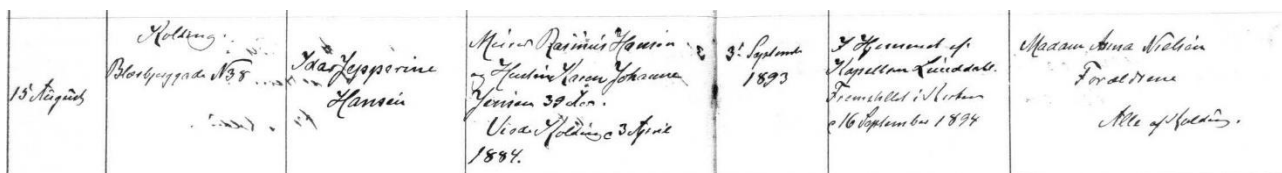 15 August
Kolding.
Blæsbjerggade N38
Ida Jepperine
Hansen
Murer Rasmus Hansen
og Hustru Karen Johanne
Jensen 39 Aar.
Viede Kolding 3 April
1884.
3' Septemb
1893
I Hjemmet af
Kapellan Lunddahl.
Fremstillet i Kirken
16 September 1894
Madam Anna Nielsen
Forældrene
Alle af Kolding.